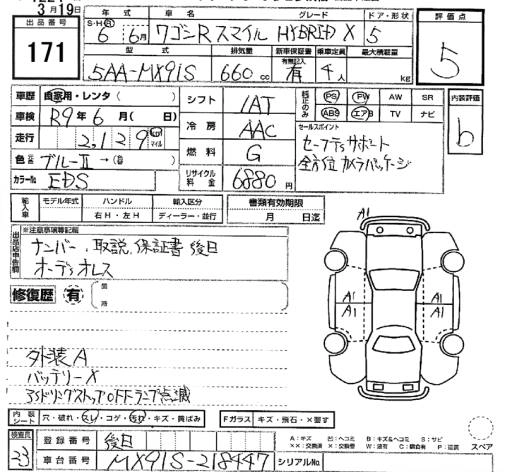 3月19日
出品番号
171
年式 車名 グレード ドア・形状
S・H・R
6年 6月 ワゴンRスマイル HYBRID X 5
評価点
5
型式 排気量 新車保証書 乗車定員 最大積載量
有無記入
5AA-MX91S 660cc 有 4人 kg
車歴 自家用・レンタ( )
車検 R9年6月( )日
走行 2,129 km マイル
色 ブルーⅡ →( )
カラーNo. EDS
シフト IAT
冷房 AAC
燃料 G
リサイクル料金 6880円
純正のみ PS PW AW SR
ABS エアB TV ナビ
セールスポイント
セーフティサポート
全方位カメラパッケージ
内装評価
b
輸入車 モデル年式 ハンドル 輸入区分
年 右H・左H ディーラー・並行
書類有効期限
月 日迄
出品店申告欄
※注意事項等記載
ナンバー、取説、保証書 後日
オーディオレス
修復歴 有
箇所
外装A
バッテリーX
アイドリングストップOFFランプ点滅
A1
A1 A1
A1 A1
内装シート 穴・破れ・スレ・コゲ・汚れ・キズ・黄ばみ
Fガラス キズ・飛石・X要す
検査員 23
登録番号 後日
車台番号 MX91S-218447
シリアルNo.
A:キズ U:ヘコミ B:キズ&ヘコミ S:サビ
XX:交換済 X:交換要 W:波有 C:腐食有 P:塗装
スペア